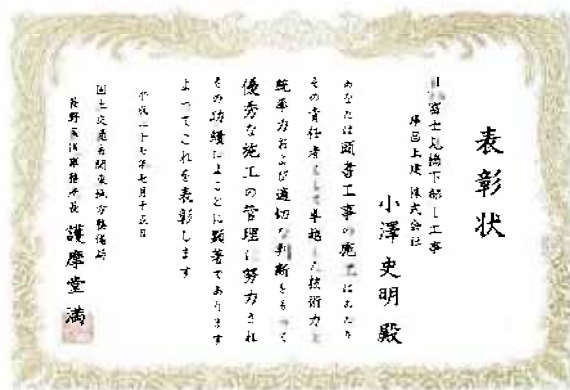 表彰状
富士見橋下部工工事
株式会社
小澤史明 殿
あなたは頭書工事の施工にあたり
その責任者として卓越した技術力と
統率力および適切な判断をもって
優秀な施工の管理に努力され
その功績はまことに顕著であります
よってこれを表彰します
平成二十七年七月十五日
国土交通省関東地方整備局
長野国道事務所長 護摩堂 満